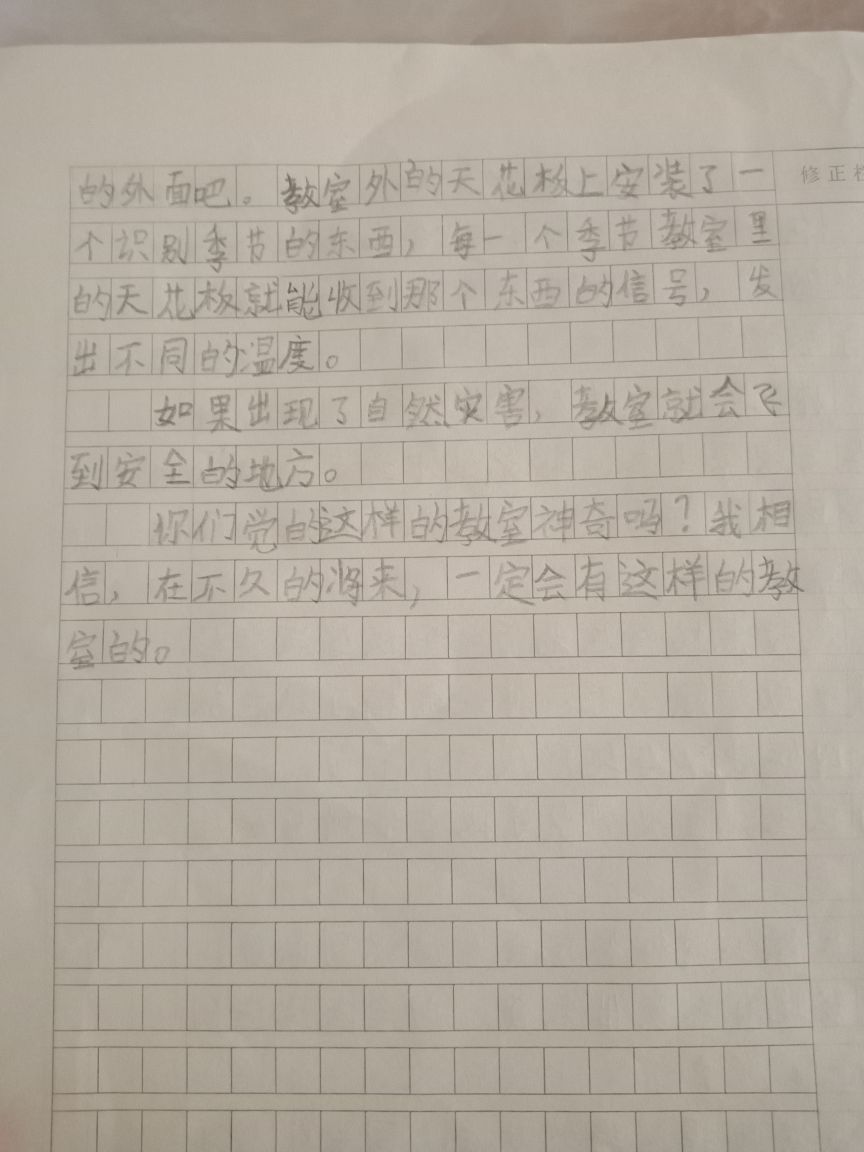 的外面吧。教室外的天花板上安装了一
个识别季节的东西，每一个季节教室里
的天花板就能收到那个东西的信号，发
出不同的温度。
如果出现了自然灾害，教室就会飞
到安全的地方。
你们觉的这样的教室神奇吗？我相
信，在不久的将来，一定会有这样的教
室的。
修正栏